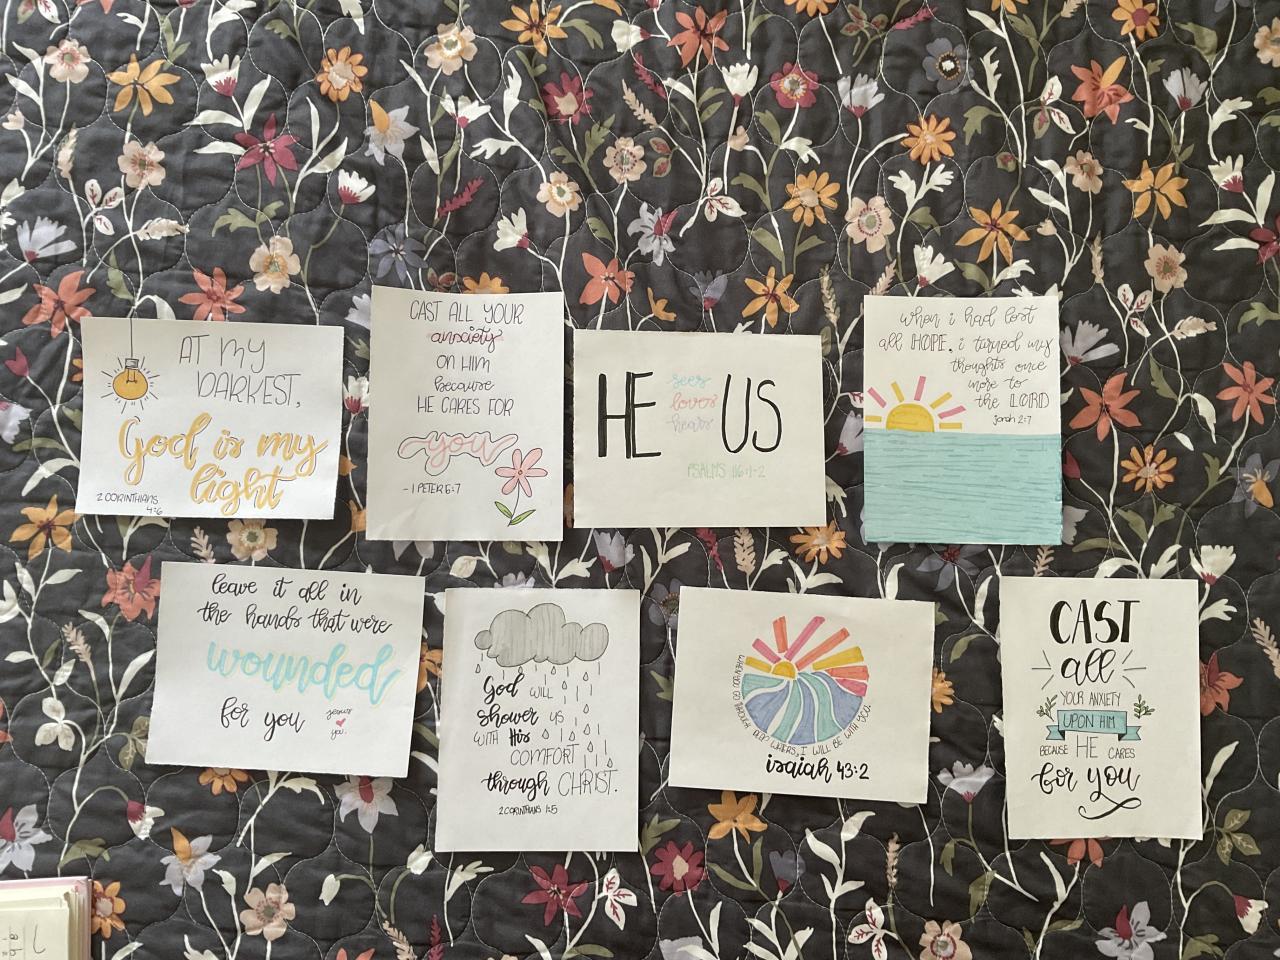 AT MY
DARKEST,
God is my
light
2 CORINTHIANS
4:6
CAST ALL YOUR
anxiety
ON HIM
because
HE CARES FOR
you
- 1 PETER 5:7
HE sees loves hears US
PSALMS 116:1-2
when i had lost
all HOPE, i turned my
thoughts once
more to
the LORD
jonah 2:7
leave it all in
the hands that were
wounded
for you
jesus
you.
God WILL
shower US
WITH His
COMFORT
through CHRIST.
2 CORINTHIANS 1:5
WHEN YOU GO THROUGH DEEP WATERS, I WILL BE WITH YOU.
isaiah 43:2
CAST
all
YOUR ANXIETY
UPON HIM
BECAUSE HE CARES
for you